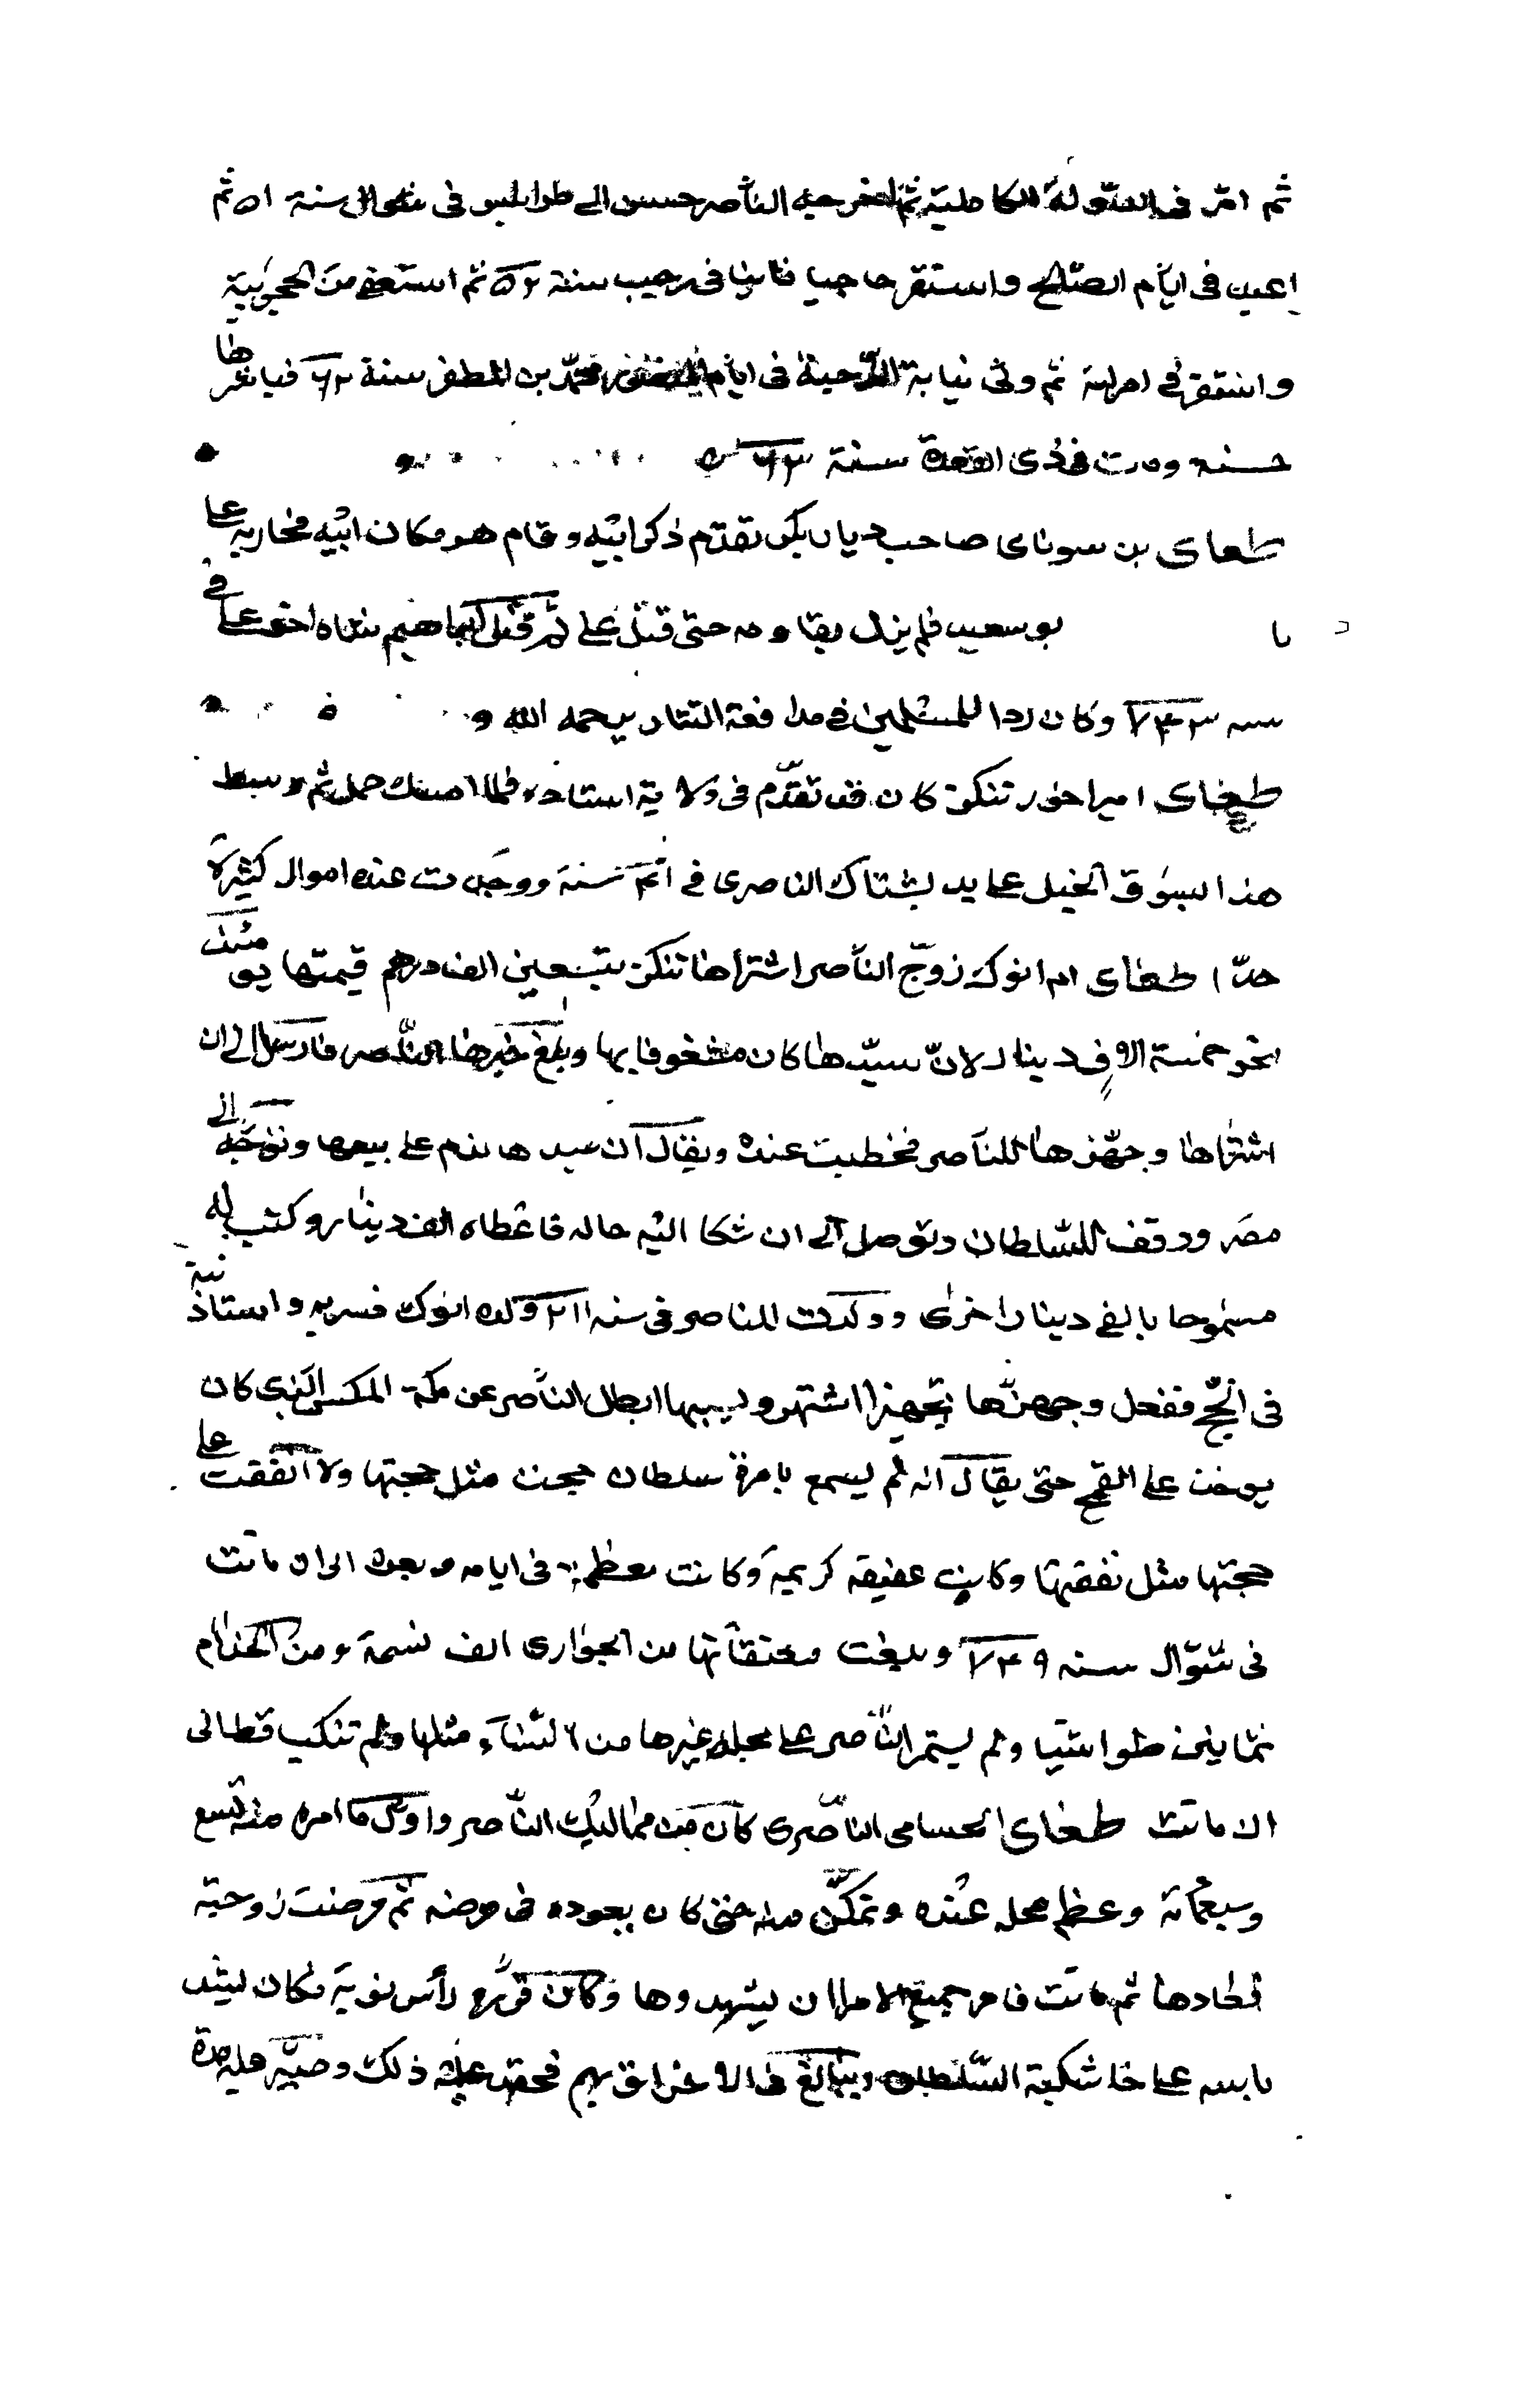 ثم امر فى الدولة الكاملية ثم اخرجه الناصر حسن الى طرابلس فى شوال سنة ٥١ ثم
اعيد فى ايام الصالح واستقر حاجبا ثانيا فى رجب سنة ٥٢ ثم استعفى من الحجوبية
واستقر فى امرائه ثم ولى نيابة الرحبة فى ايام المنصور محمد بن المظفر سنة ٦٢ فباشرها
حسنه ومات فى ذى القعدة سنة ٦٢
طغاى بن سوتاى صاحب ديار بكر تقدم ذكر ابيه وقام هو مكان ابيه فحاربه على
با بو سعيد فلم يزل يقاومه حتى قتل على ثم قتل ابراهيم شاه اخو على فى
سنه ٧٤٣ وكان ردا للمسلمين فى مدافعة التتار رحمه الله
طغاى امير اخور تنكز كان قد تقدم فى ولاية استاذه فلما امسك حمل ثم وسط
هذا بسوق الخيل على يد بشتاك الناصرى فى سنة ووجدت عنده اموال كثيرة
جدا طغاى ام انوك زوج الناصر اشتراها تنكز بتسعين الف درهم قيمتها يومئذ
نحو خمسة الاف دينار لان سيدها كان مشغوفا بها وبلغ خبرها الناصر فارسل الى ان
اشتراها وجهزها للناصر فحظيت عنده ويقال ان سيدها ندم على بيعها وتوجه الى
مصر ووقف للسلطان وتوصل الى ان شكا اليه حاله فاعطاه الف دينار وكتب له
مسموحا بالفى دينار اخرى وولدت للناصر فى سنه ٢١ ولده انوك فسر به واستاذنته
فى الحج ففعل وجهزها تجهيزا اشتهر وبسببها ابطل الناصر عن مكة المكس الذى كان
يوخذ على القمح حتى يقال انه لم يسمع بامرة سلطان حجت مثل حجتها ولا انفقت على
حجتها مثل نفقتها وكانت عفيفه كريمة وكانت معظمة فى ايامه وبعده الى ان ماتت
فى شوال سنه ٧٤٩ وبلغت معتقاتها من الجوارى الف نسمة ومن الخدام
ثمانين طواشيا ولم يستمر الناصر على محبة غيرها من النساء مثلها ولم تنكب قط الى
ان ماتت طغاى الحسامى الناصرى كان من مماليك الناصر واول ما امره سنة تسع
وسبعمائة وعظم محله عنده وتمكن منه حتى كان يعوده فى مرضه ثم مرضت زوجته
فعادها ثم ماتت فامر جميع الامرا ان يشهدوها وكان قرره رأس نوبة فكان يشد
باسه على خاشكية السلطان ويبالغ فى الاخراق بهم فحقد عليه ذلك وصبر عليه مدة